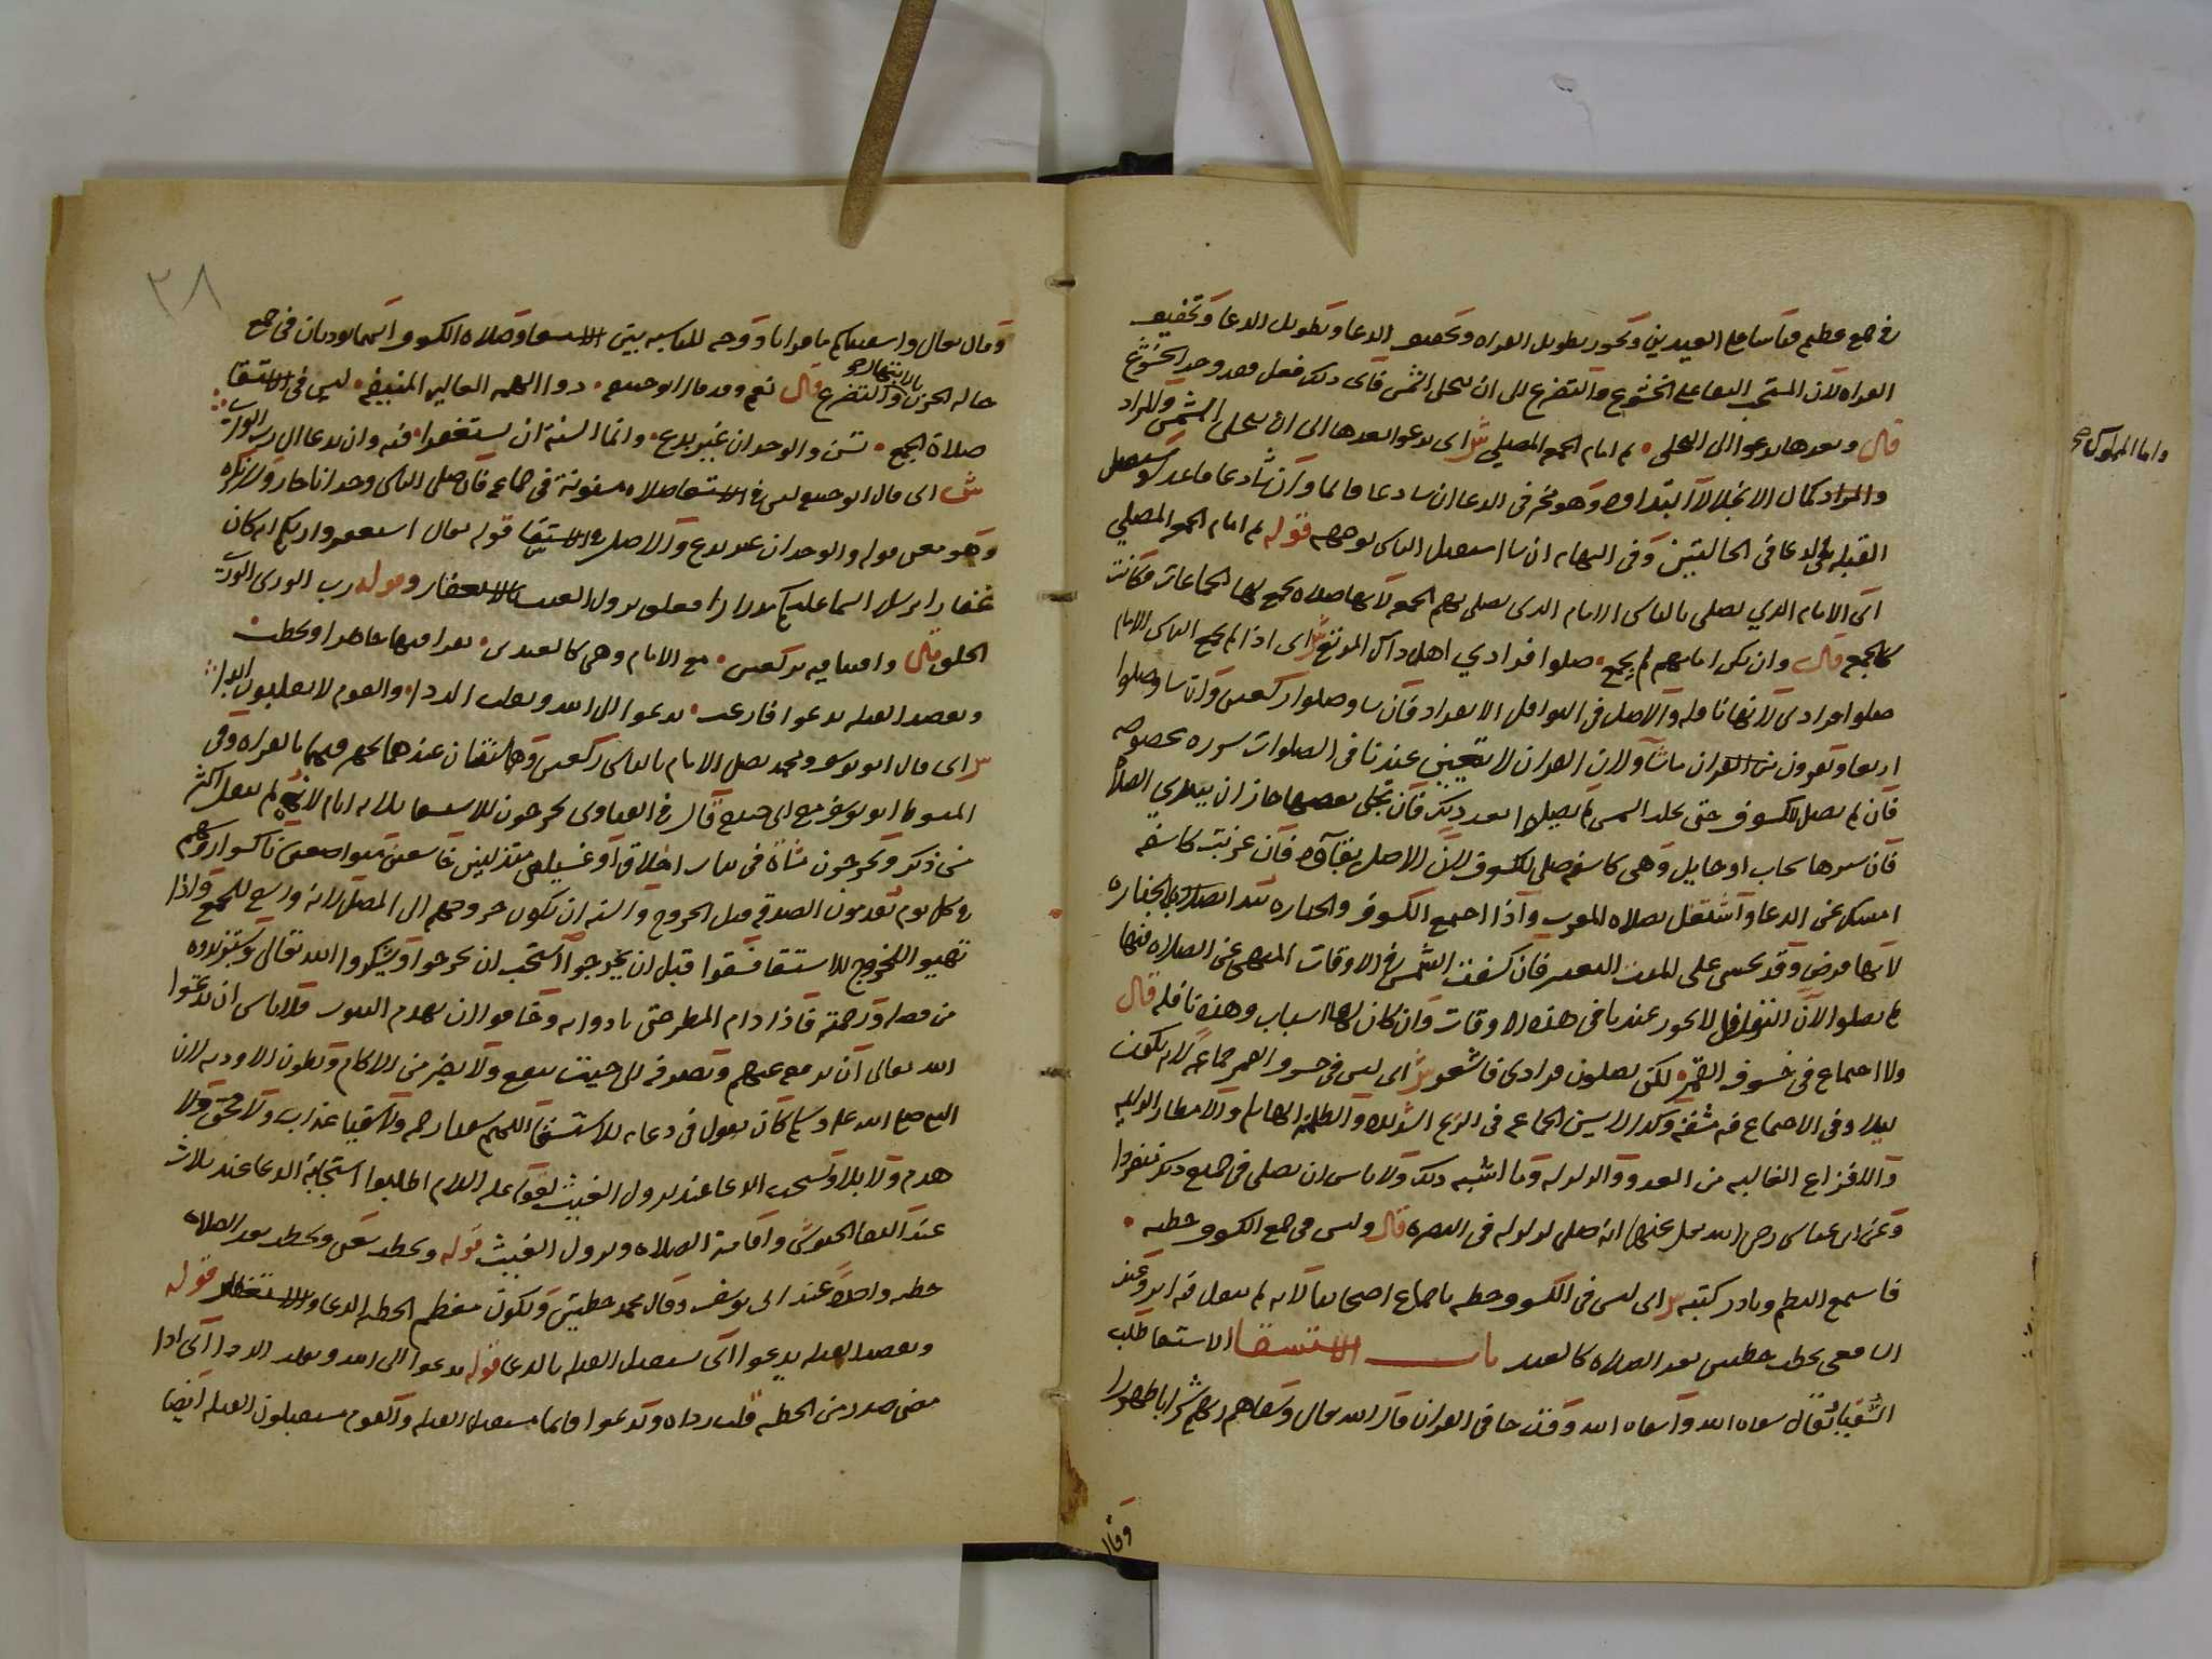 في جمع عظيم قياسا على العيدين وتجوز تطويل القراه وتخفيف الدعا وتطويل الدعا وتخفيف
القراه لان المستحب البقا على الخشوع والتضرع الى ان تنجلي الشمس فاى ذلك فعل فقد وجد الخشوع
قال وبعدها يدعوا الى التجلى • ثم امام الجمع المصلي ش اى يدعوا بعدها الى ان تنجلي الشمس والمراد
والمراد كمال الانجلا لا ابتداوه وهو مخير في الدعا ان شا دعا قائما وان شا دعا قاعدا ويستقبل
القبله في الدعا في الحالتين وفى النهايه ان شا استقبل الناس بوجهه قوله ثم امام الجمع المصلي
اى الامام الذي يصلى بالناس الامام الذى يصلى بهم الجمعه لانها صلاه تجمع لها الجماعات فكانت
كالجمع قال وان يكن امامهم لم يجمع • صلوا فرادي اهل ذاك الموضع ش اى اذا لم يجمع الناس الامام
صلوا فرادى لانها نافله والاصل في النوافل الانفراد فان شاوا صلوا ركعتين وان شاوا صلوا
اربعا ويقرون من القران ما شا ولان القران لا يتعين عندنا في الصلوات سوره مخصوصه
فان لم يصل للكسوف حتى تجلت الشمس لم يصل بعد ذلك فان تجلى بعضها جاز ان يبتدي الصلاه
فان سترها سحاب او حايل وهى كاسفه صلى للكسوف لان الاصل بقاوه فان غربت كاسفه
امسك عن الدعا واشتغل بصلاه المغرب واذا اجتمع الكسوف والجنازه بدا بصلاة الجنازه
لانها فرض وقد يخشى على الميت التغير فان كسفت الشمس في الاوقات المنهى عن الصلاه فيها
لم يصلوا لان النوافل لا تجوز عندنا في هذه الاوقات وان كان لها اسباب وهذه نافله قال
ولا اجتماع في خسوف القمر • لكن يصلون فرادى فاشعر ش اى ليس في خسوف القمر جماعه لانه يكون
ليلا وفى الاجتماع فيه مشقه وكذا لا يسن الجماعه في الريح الشديده والظلمه الهايله والامطار الدايمه
والافزاع الغالبه من العدو والزلزله وما اشبه ذلك ولا باس ان يصلى في جميع ذلك منفردا
وعن ابن عباس رضى الله عنهما انه صلى لزلزله في البصره قال وليس في جمع الكسوف خطبه •
فاسمع النظم وبادر كتبه ش اى ليس في الكسوف خطبه باجماع اصحابنا لانه لم ينقل فيه اثر وعند
الشافعي يخطب خطبتين بعد الصلاه كالعيد باب الاستسقا الاستسقا طلب
السقيا يقال سقاه الله واسقاه الله وقد جا في القران قال الله تعالى وسقاهم ربهم شرابا طهورا
وقال
واما المملوك صح
٣٨
وقال تعالى واسقيناكم ما فراتا ووجه المناسبه بين الاستسقا وصلاه الكسوف انهما يوديان في جمع
حاله الحزن والتضرع بالابتهال صح قال نعم وقد قال ابو حنيفه • ذو الهمه العاليه المنيفه • ليس في الاستسقا
صلاة الجمع • تسن والوحدان غير بدع • وانما السنه ان يستغفروا • فيه وان يدعا الى رب الورى
ش اى قال ابو حنيفه ليس في الاستسقا صلاه مسنونة في جماعه فان صلى الناس وحدانا جاز ولا يكره
وهو معنى قوله والوحدان غير بدع والاصل في الاستسقا قوله تعالى استغفروا ربكم انه كان
غفارا يرسل السما عليكم مدرارا فعلق نزول الغيث بالاستغفار وقوله رب الورى الورى
الخلق قال وافتيا فيه بركعتين • مع الامام وهي كالعيدين • يقرا فيها جاهرا ويخطب •
ويقصد القبله يدعوا فارغب • يدعوا الى الله ويقلب الردا • والقوم لا يقلبون ابدا
ش اى قال ابو يوسف ومحمد يصلى الامام بالناس ركعتين وهما سنتان عندهما يجهر فيهما بالقراه وفى
المبسوط ابو يوسف مع ابى حنيفه قال في الفتاوى يخرجون للاستسقا ثلاثه ايام لانه لم ينقل اكثر
من ذلك ويخرجون مشاة في ثياب اخلاق او غسيله متذللين خاشعين متواضعين ناكسوا روسهم
وكل يوم يقدمون الصدقه قبل الخروج والسنه ان يكون خروجهم الى المصلى لانه واسع للجمع واذا
تهيوا للخروج للاستسقا فسقوا قبل ان يخرجوا استحب ان يخرجوا ويشكروا الله تعالى ويستزيدوه
من فضله ورحمته فاذا دام المطر حتى تاذوا به وخافوا ان يهدم البيوت فلا باس ان يدعوا
الله تعالى ان يرفعه عنهم ويصرفه الى حيث ينفع ولا يضر من الاكام وبطون الاوديه لان
النبي صلى الله عليه وسلم كان يقول في دعايه للاستسقا اللهم سقيا رحمه ولا سقيا عذاب ولا محق ولا
هدم ولا بلا ويستحب الدعا عند نزول الغيث لقوله عليه السلام اطلبوا استجابة الدعا عند ثلاث
عند التقا الجيوش واقامة الصلاه ونزول الغيث قوله ويخطب يعنى ويخطب بعد الصلاه
خطبه واحده عند ابى يوسف وقال محمد خطبتين ويكون معظم الخطبه الدعا والاستغفار قوله
ويقصد القبله يدعوا اى يستقبل القبله بالدعا قوله يدعوا الى الله ويقلب الردا اى اذا
مضى صدر من الخطبه قلب رداه ويدعوا قايما مستقبل القبله والقوم مستقبلون القبله ايضا